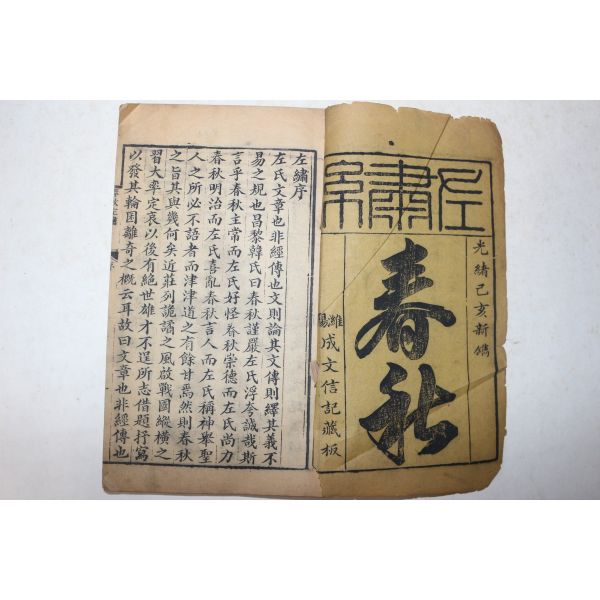 左繡
光緒己亥新鐫
春秋
濰陽
成文信記藏板
左繡序
左氏文章也非經傳也文則論其文傳則繹其義不
易之規也昌黎韓氏曰春秋謹嚴左氏浮夸誠哉斯
言乎春秋主常而左氏好怪春秋崇德而左氏尚力
春秋明治而左氏喜亂春秋言人而左氏稱神舉聖
人之所必不語者而津津道之有餘甘焉然則春秋
之旨其與幾何矣近莊列詭譎之風啟戰國縱橫之
習大率定哀以後有絕世雄才不逞所志借題抒寫
以發其輪囷離奇之概云耳故曰文章也非經傳也